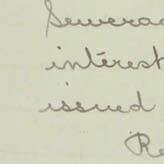 Sewera
interest
issued
Re